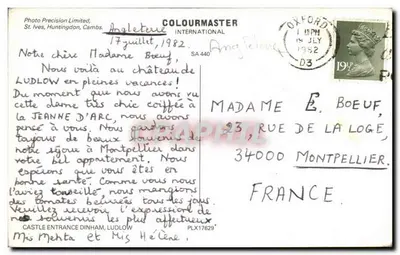 Photo Precision Limited,
St. Ives, Huntingdon, Cambs.
COLOURMASTER
INTERNATIONAL
SA 440
Angleterre
17 juillet, 1982.
Notre chère Madame Bœuf,
Nous voilà au château de
LUDLOW en pleines vacances!
Du moment que nous avons vu
cette dame très chic coiffée à
la JEANNE D'ARC, nous avons
pensé à vous. Nous
de beaux
notre séjour à Montpellier dans
votre bel appartement. Nous
espérons que vous êtes en
bonne santé. Comme vous nous
l'aviez conseillé, nous mangions
des tomates tous les jours
Veuillez recevoir l'expression de
nos souvenirs les plus affectueux
Miss Mehta et Miss Hélène.
CASTLE ENTRANCE DINHAM, LUDLOW
PLX17629
OXFORD
PM
JLY
1982
D3
19½P
MADAME E. BOEUF,
23, RUE DE LA LOGE,
34000 MONTPELLIER.
FRANCE.